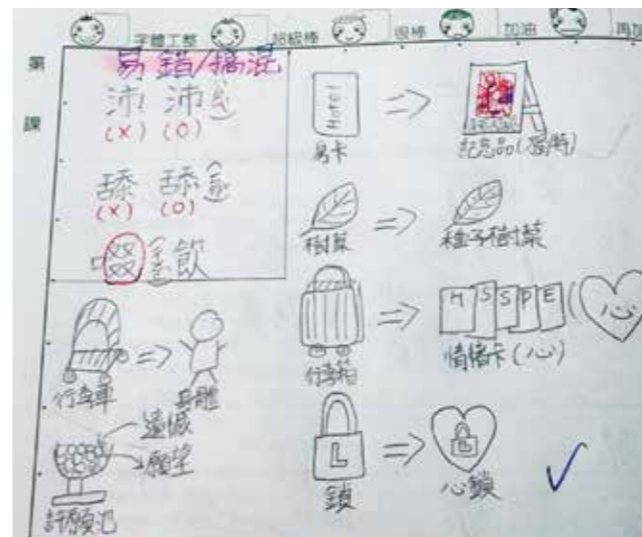 字體工整 超級棒 很棒 加油 再加
第
課
易錯/搞混
沛 沛
(X) (O)
舔 舔
(X) (O)
飲
Hotel
房卡
紀念品(獨特)
樹葉
種子樹葉
行李箱
H S S P E
情緒卡(心)
心
行李車
身體
遺憾
願望
許願池
L
鎖
L
心鎖